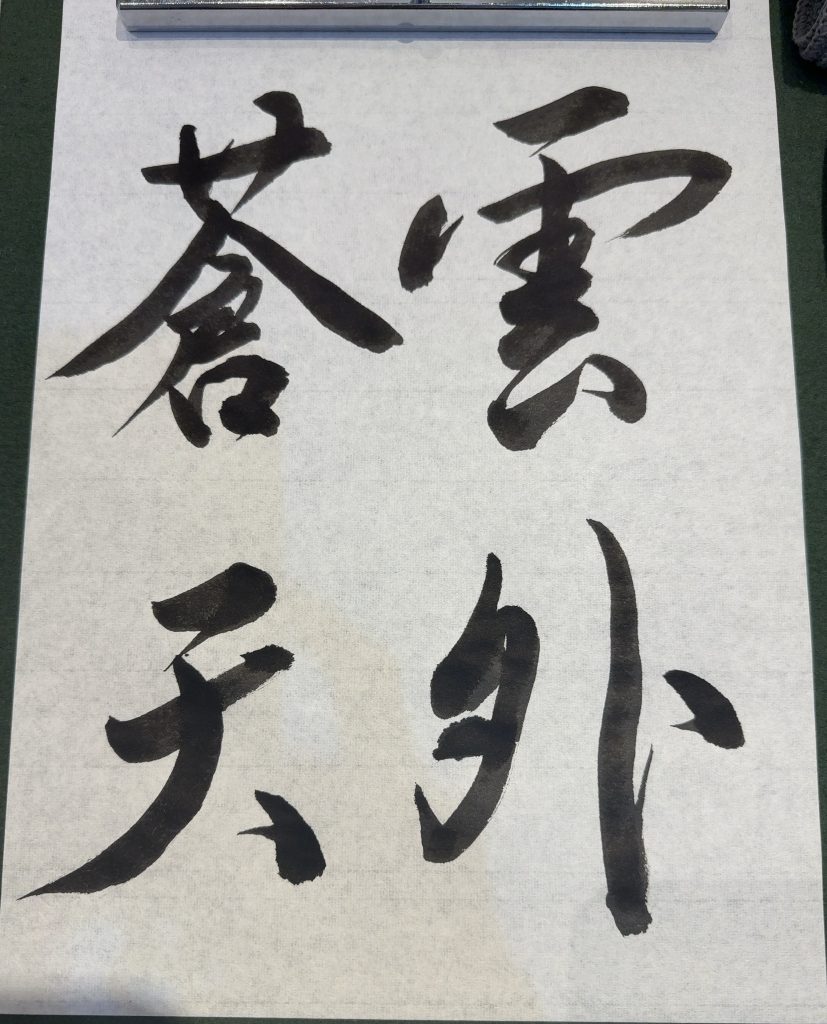 雲外
蒼天